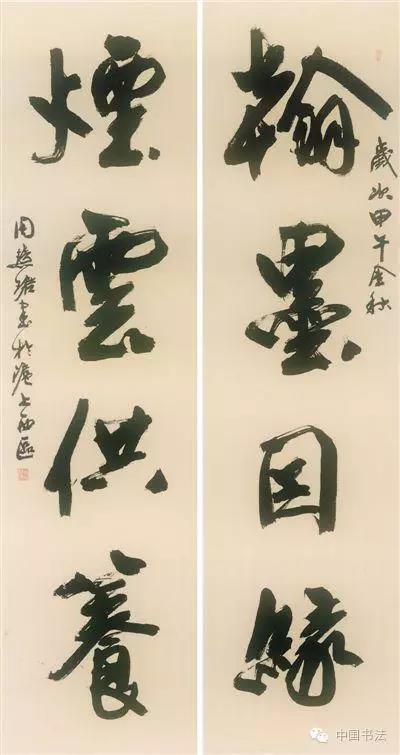 翰墨因緣
歲次甲午金秋
煙雲供養
周慧珺書於滬上西區
中国书法